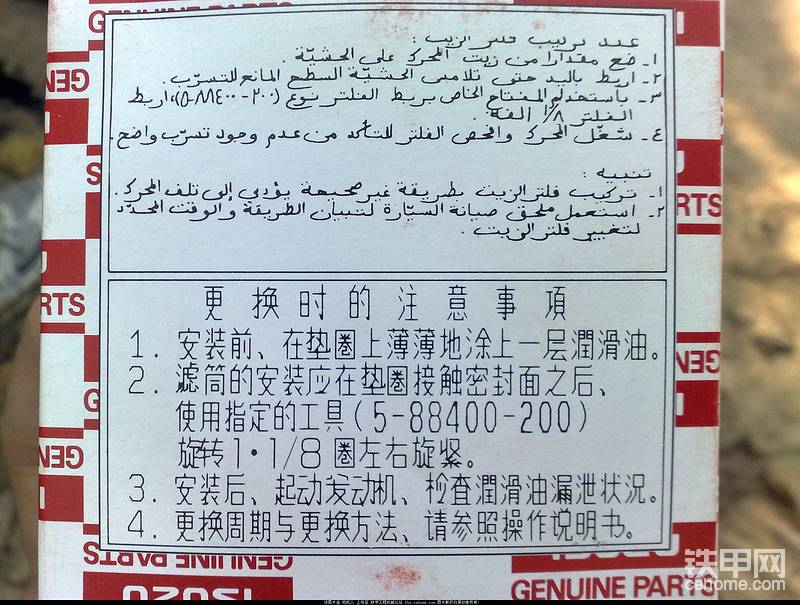 GENUINE PARTS
عند تركيب فلتر الزيت :
١- ضع مقدارا من زيت المحرك على الحشيّة .
٢- اربط باليد حتى تلامس الحشية السطح المانع للتسرّب .
٣- باستخدام المفتاح الخاص بربط الفلتر نوع (٢٠٠-٨٨٤٠٠-٥)، اربط
الفلتر ١/٨ ١ لفة .
٤- شغّل المحرك وافحص الفلتر للتأكد من عدم وجود تسرّب واضح .
تنبيه :
١- تركيب فلتر الزيت بطريقة غير صحيحة يؤدي إلى تلف المحرك .
٢- استعمل ملحق صيانة السيّارة لتبيان الطريقة والوقت المحدّد
لتغيير فلتر الزيت .
更换时的注意事項
1. 安装前、在垫圈上薄薄地涂上一层潤滑油。
2. 滤筒的安装应在垫圈接触密封面之后、
使用指定的工具(5-88400-200)
旋转1・1/8圈左右旋紧。
3. 安装后、起动发动机、检查潤滑油漏泄状况。
4. 更换周期与更换方法、请参照操作说明书。
GENUINE PARTS
ISUZU
GENUINE PARTS
铁甲网
cehome.com